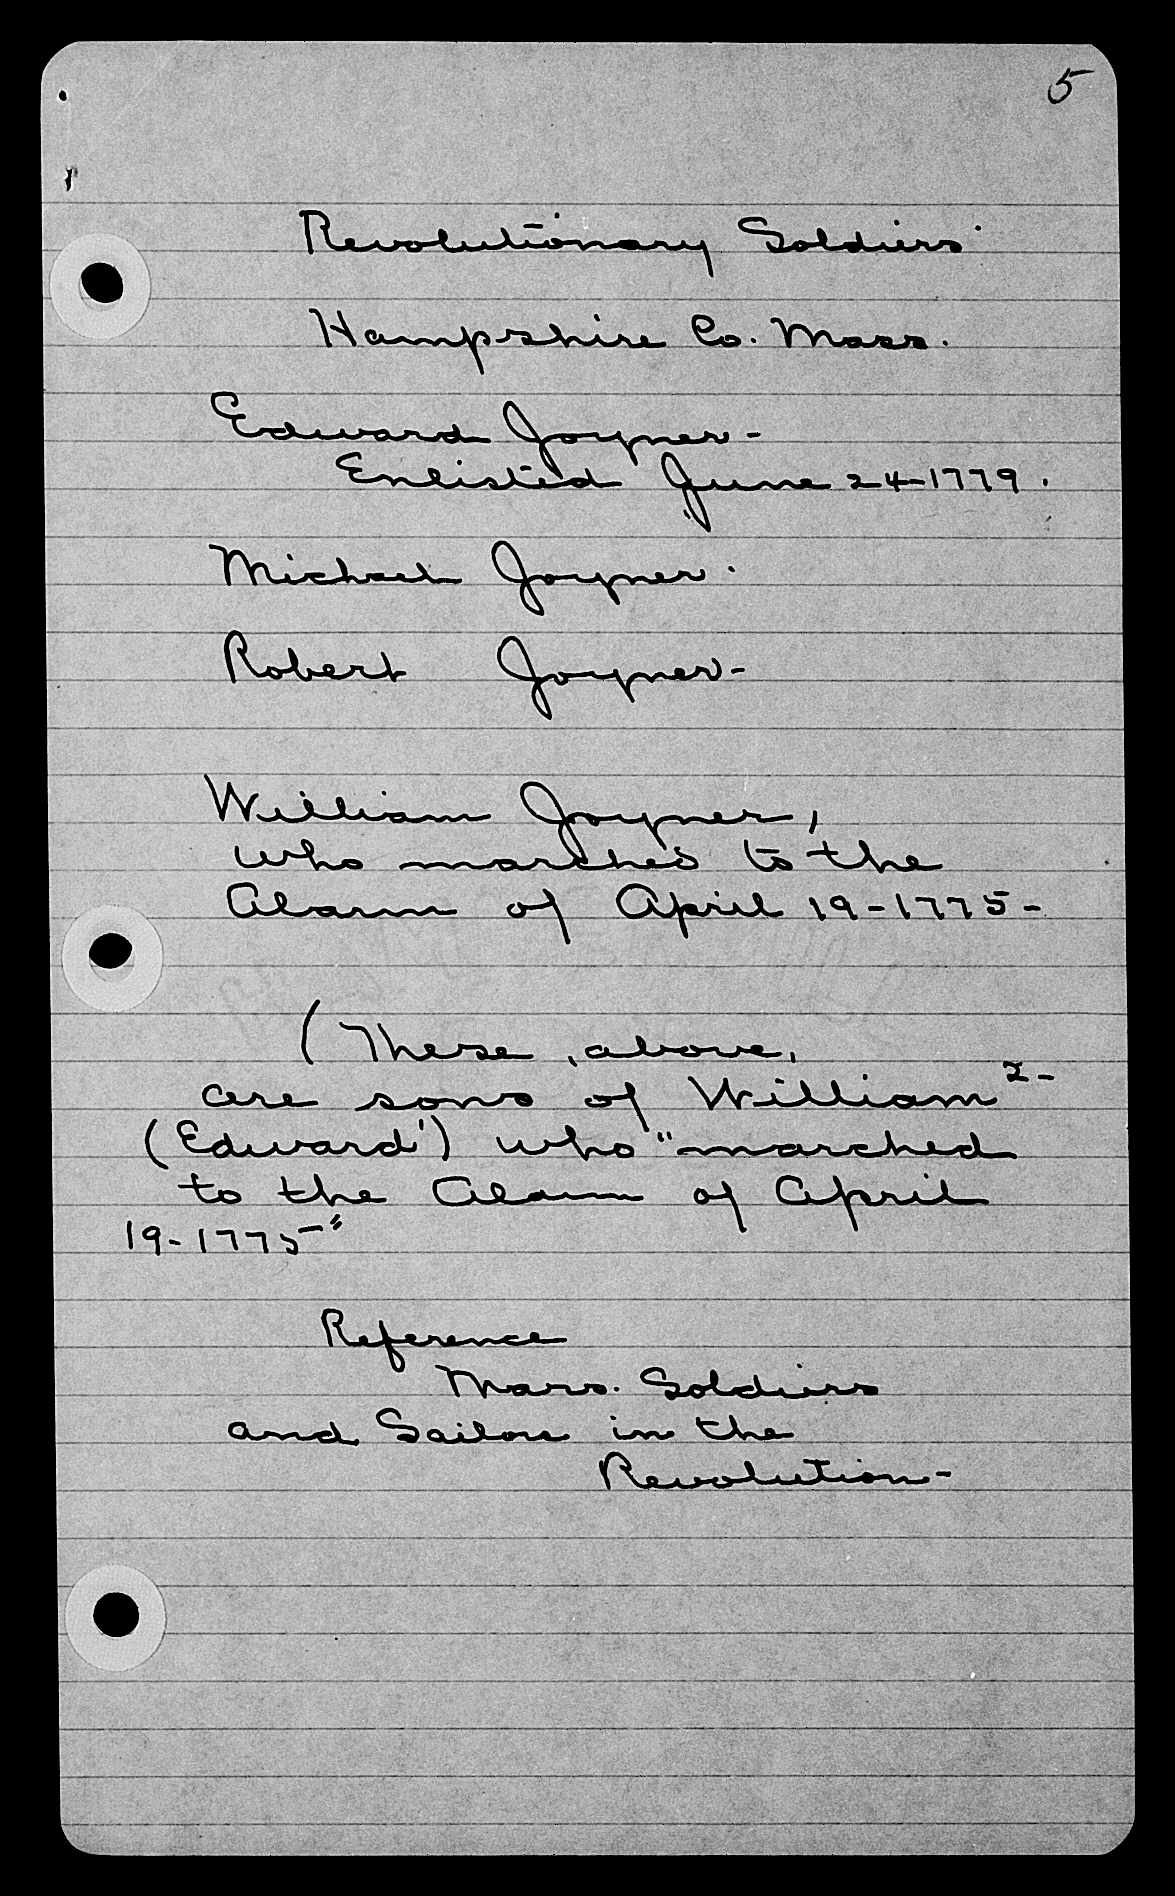 5
Revolutionary Soldiers
Hampshire Co. Mass.
Edward Joyner-
Enlisted June 24-1779.
Michael Joyner.
Robert Joyner-
William Joyner,
who marched to the
Alarm of April 19-1775-
(These, above,
are sons of William²-
(Edward¹) who "marched
to the Alarm of April
19-1775"
Reference
Mass. Soldiers
and Sailors in the
Revolution-